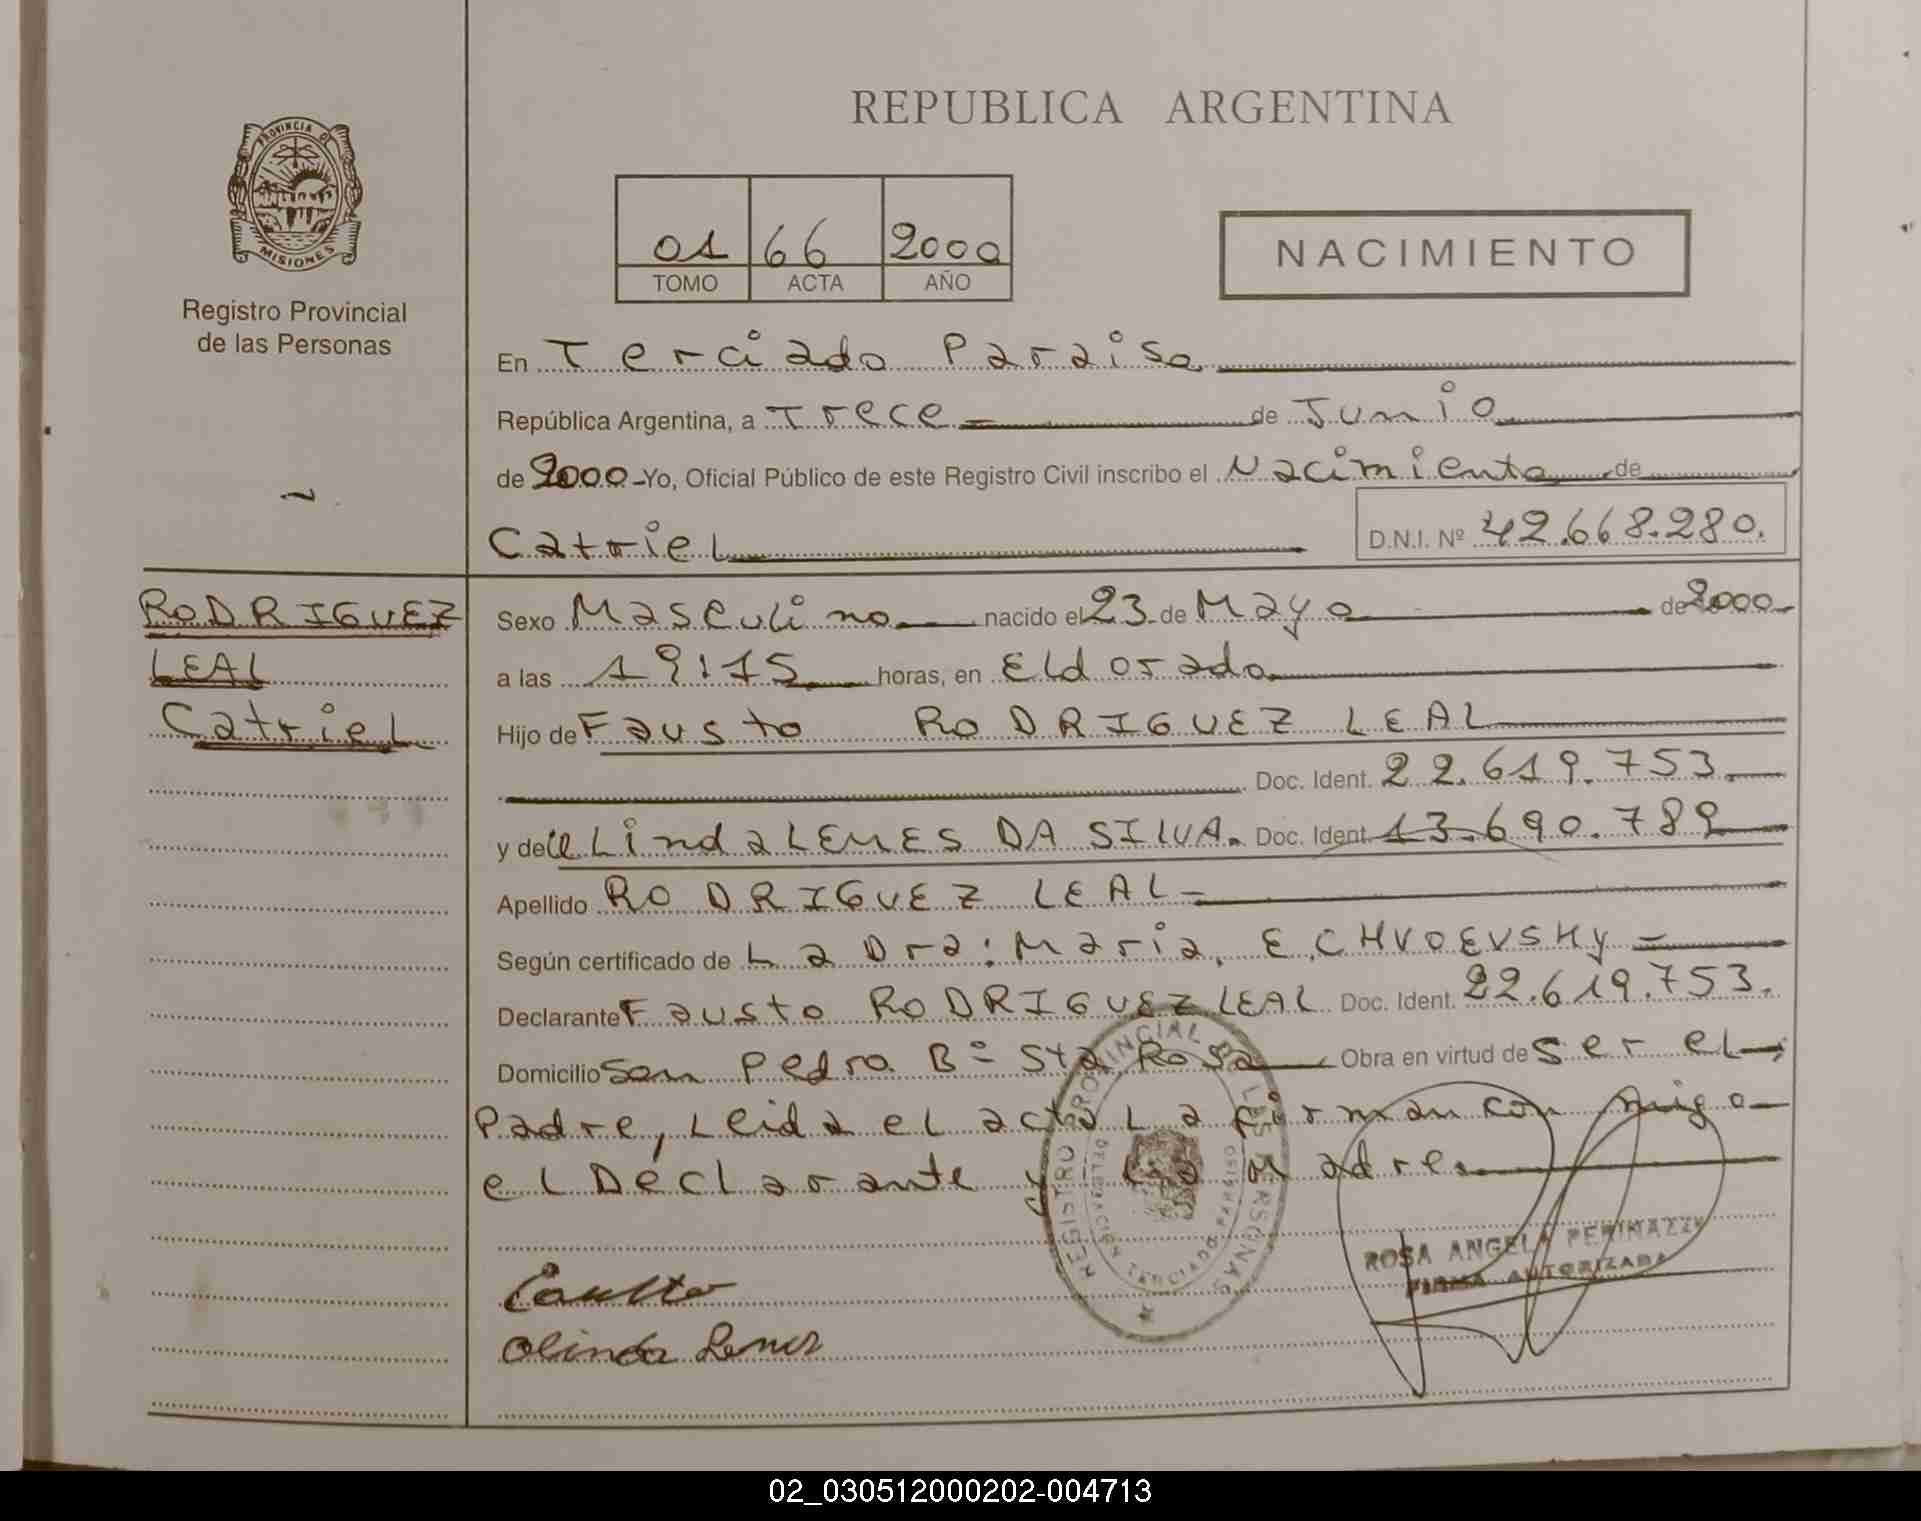 REPUBLICA ARGENTINA
PROVINCIA DE
MISIONES
Registro Provincial
de las Personas
01 66 2000
TOMO ACTA AÑO
NACIMIENTO
En Terciado Paraiso
República Argentina, a Trece de Junio
de 2000 Yo, Oficial Público de este Registro Civil inscribo el Nacimiento de
Catriel D.N.I. Nº 42.668.280.
RODRIGUEZ
LEAL
Catriel
Sexo Masculino nacido el 23 de Mayo de 2000
a las 19:15 horas, en Eldorado
Hijo de Fausto RODRIGUEZ LEAL
Doc. Ident. 22.619.753.
y de LEMES DA SILVA. Doc. Ident. 13.690.789
Apellido RODRIGUEZ LEAL
Según certificado de La Dra: Maria, E,
Declarante Fausto RODRIGUEZ LEAL Doc. Ident. 22.619.753.
Domicilio San Pedro Bº Sta Rosa Obra en virtud de ser el
Padre, Leida el acta La firman con migo
el Declarante y La Madre.
REGISTRO PROVINCIAL DE LAS PERSONAS
DELEGACION TERCIADO PARAISO
ROSA ANGELA PERINAZZI
FIRMA AUTORIZADA
Olinda Lemes
02_030512000202-004713